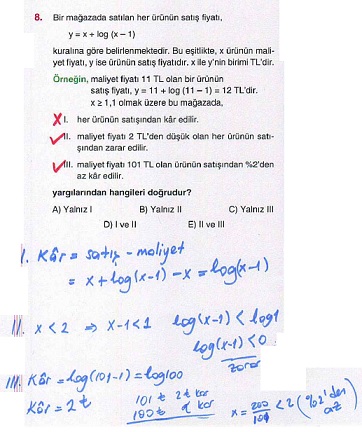 8. Bir mağazada satılan her ürünün satış fiyatı,
y = x + log (x – 1)
kuralına göre belirlenmektedir. Bu eşitlikte, x ürünün mali-
yet fiyatı, y ise ürünün satış fiyatıdır. x ile y'nin birimi TL'dir.
Örneğin, maliyet fiyatı 11 TL olan bir ürünün
satış fiyatı, y = 11 + log (11 – 1) = 12 TL'dir.
x ≥ 1,1 olmak üzere bu mağazada,
I. her ürünün satışından kâr edilir.
II. maliyet fiyatı 2 TL'den düşük olan her ürünün satı-
şından zarar edilir.
III. maliyet fiyatı 101 TL olan ürünün satışından %2'den
az kâr edilir.
yargılarından hangileri doğrudur?
A) Yalnız I B) Yalnız II C) Yalnız III
D) I ve II E) II ve III
I. Kâr = satış - maliyet
= x + log(x-1) - x = log(x-1)
II. x < 2 ⇒ x-1<1 log(x-1) < log1
log(x-1) < 0
zarar
III. Kâr = log(101-1) = log100
Kâr = 2 ₺
101 ₺ 2 ₺ kar
100 ₺ x kar
x = 200/101 < 2 (%2'den az)